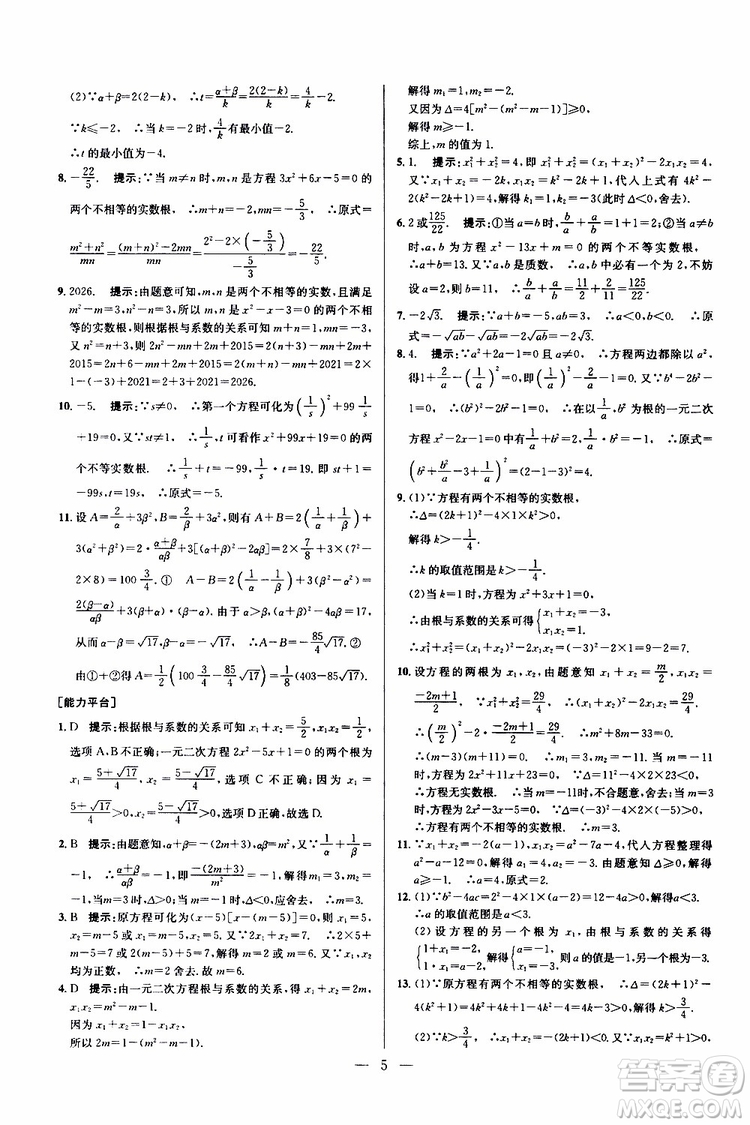 (2)∵α+β=2(2−k), ∴t=(α+β)/k=2(2−k)/k=4/k−2.
∵k≤−2, ∴当k=−2时,4/k有最小值−2.
∴t的最小值为−4.
8. −22/5. 提示:∵当m≠n时,m,n是方程3x²+6x−5=0的
两个不相等的实数根, ∴m+n=−2,mn=−5/3, ∴原式=
(m²+n²)/mn=((m+n)²−2mn)/mn=(2²−2×(−5/3))/(−5/3)=−22/5.
9. 2026. 提示:由题意可知,m,n是两个不相等的实数,且满足
m²−m=3,n²−n=3,所以m,n是x²−x−3=0的两个不相
等的实数根,则根据根与系数的关系可知m+n=1,mn=−3,
又n²=n+3,则2n²−mn+2m+2015=2(n+3)−mn+2m+
2015=2n+6−mn+2m+2015=2(m+n)−mn+2021=2×
1−(−3)+2021=2+3+2021=2026.
10. −5. 提示:∵s≠0, ∴第一个方程可化为(1/s)²+99·1/s
+19=0. 又∵st≠1, ∴1/s,t可看作方程x²+99x+19=0的两
个不等实数根. ∴1/s+t=−99,1/s·t=19. 即st+1=
−99s,t=19s, ∴原式=−5.
11. 设A=2/α+3β²,B=2/β+3α²,则有A+B=2(1/α+1/β)
+3(α²+β²)=2·(α+β)/αβ+3[(α+β)²−2αβ]=2×7/8+3(7²−
2×8)=100 3/4.① A−B=2(1/α−1/β)+3(β²−α²)=
2(β−α)/αβ+3(β+α)·(β−α). 由于α>β,(α−β)²=(α+β)²−4αβ=17,
从而α−β=√17, ∴A−B=−85/4√17.②
由①+②得A=1/2(100 3/4−85/4√17)=1/8(403−85√17).
[能力平台]
1. D 提示:根据根与系数的关系可知x₁+x₂=5/2,x₁x₂=1/2,
选项A、B不正确;一元二次方程2x²−5x+1=0的两个根为
x=(5±√17)/4, ∴x₁=(5+√17)/4>0,选项C不正确;x₂=
(5−√17)/4>0,故选项D正确,故选D.
2. B 提示:由题意知,α+β=−(2m+3),αβ=m²,又∵1/α+1/β=
(α+β)/αβ=−1, ∴(α+β)/αβ=−1,即−(2m+3)/m²=−1,解得m=3或
m=−1,当m=3时,△>0;当m=−1时,△<0,应舍去.
3. B 提示:原方程可化为(x−5)[x−(m−5)]=0,则x₁=5,
x₂=m−5, ∵2x₁+x₂=7, ∴2×5+
m−5=7, ∴m=2, ∴x₂=m−5=−3. ∵
均为正数, ∴m=2舍去.故选B.
4. D 提示:由一元二次方程根与系数的关系得x₁+x₂=2m,
因为x₁+x₂=1−x₁x₂,
所以2m=1−(m²−m−1).
解得m₁=1,m₂=−2.
又因为△=4[m²−(m²−m−1)]≥0,
解得m≥−1.
综上,m的值为1.
5. 1. 提示:x₁²+x₁x₂+x₂²=4,代入上式有4k²−
(k²−2k+2)=4,解得k₁=0,k₂=−3(此时△<0,舍去).
6. 2或125/22. 提示:①当a=b时,b/a+a/b=1+1=2;②当a≠b
时,a,b为方程x²−13x+m=0的两个不相等实数根,
∴a+b=13. ∵a,b是质数, ∴a与b中有一个为2,不妨
设a=2, ∴b=11, ∴b/a+a/b=11/2+2/11=125/22.
7. −2√3. 提示:∵a+b=−5,ab=3, ∴a<0,b<0, ∴原式=
−√ab−√ab=−2√ab=−2√3.
8. 4. 提示:∵a²+2a−1=0且a≠0, ∴方程两边都除以a²,
得1+2/a−1/a²=0, ∴(1/a)²−2·1/a−1=0. 又∵b⁴−2b²−
1=0, ∴1/a≠b², ∴1/a,b²是以x为根的一元二次
方程x²−2x−1=0的两根. ∴1/a+b²=2,b²/a=−1. ∴原式
=(b²+1/a+b²/a−3)²=(2−1−3)²=4.
9. (1)∵方程有两个不相等的实数根,
∴△=(2k+1)²−4×1×k²>0.
解得k>−1/4.
∴k的取值范围是k>−1/4.
(2)当k=1时,方程为x²+3x+1=0,
∴由根与系数的关系可得{x₁+x₂=−3,
x₁x₂=1.
∴x₁²+x₂²=(x₁+x₂)²−2x₁x₂=(−3)²−2×1=9−2=7.
10. 设方程的两根为x₁,x₂,由题意可知x₁+x₂=m/2,x₁x₂=
(−2m+1)/2. ∵x₁²+x₂²=29/4, ∴(x₁+x₂)²−2x₁x₂=29/4.
∴(m/2)²−2×(−2m+1)/2=29/4. ∴m²+8m−33=0.
∴(m−3)(m+11)=0. ∴m₁=3,m₂=−11. ∵当m=−11
时,方程为2x²+11x+23=0, △=11²−4×2×23<0,
∴方程无实数根. ∴m=−11时,不合题意,舍去;当m=3
时,方程为2x²−3x−5=0, △=(−3)²−4×2×(−5)>0,
∴方程有两个不相等的实数根. ∴m=3.
11. 由题意可知,x₁+x₂=−2a,x₁x₂=−4a,代入方程整理得
a²−a−2=0, ∴a=2或a=−1. 由题意知△≥0,
a=−1.
12. (1)∵b²−4ac=2²−4×1×(a−2)=12−4a>0,解得a<3.
∴a的取值范围是a<3.
(2)设方程的另一个根为x₁,由根与系数的关系得
{1+x₁=−2,
1·x₁=a−2, 解得{a=−1,
x₁=−3.
13. (1)∵原方程有两个不相等的实数根, ∴△=(2k+1)²
−4(k²+1)=4k²+4k+1−4k²−4=4k−3>0,解得k>3/4.
(2)∵k>3/4, ∴x₁+x₂=−(2k+1)<0, 又∵x₁·x₂=k²
— 5 —